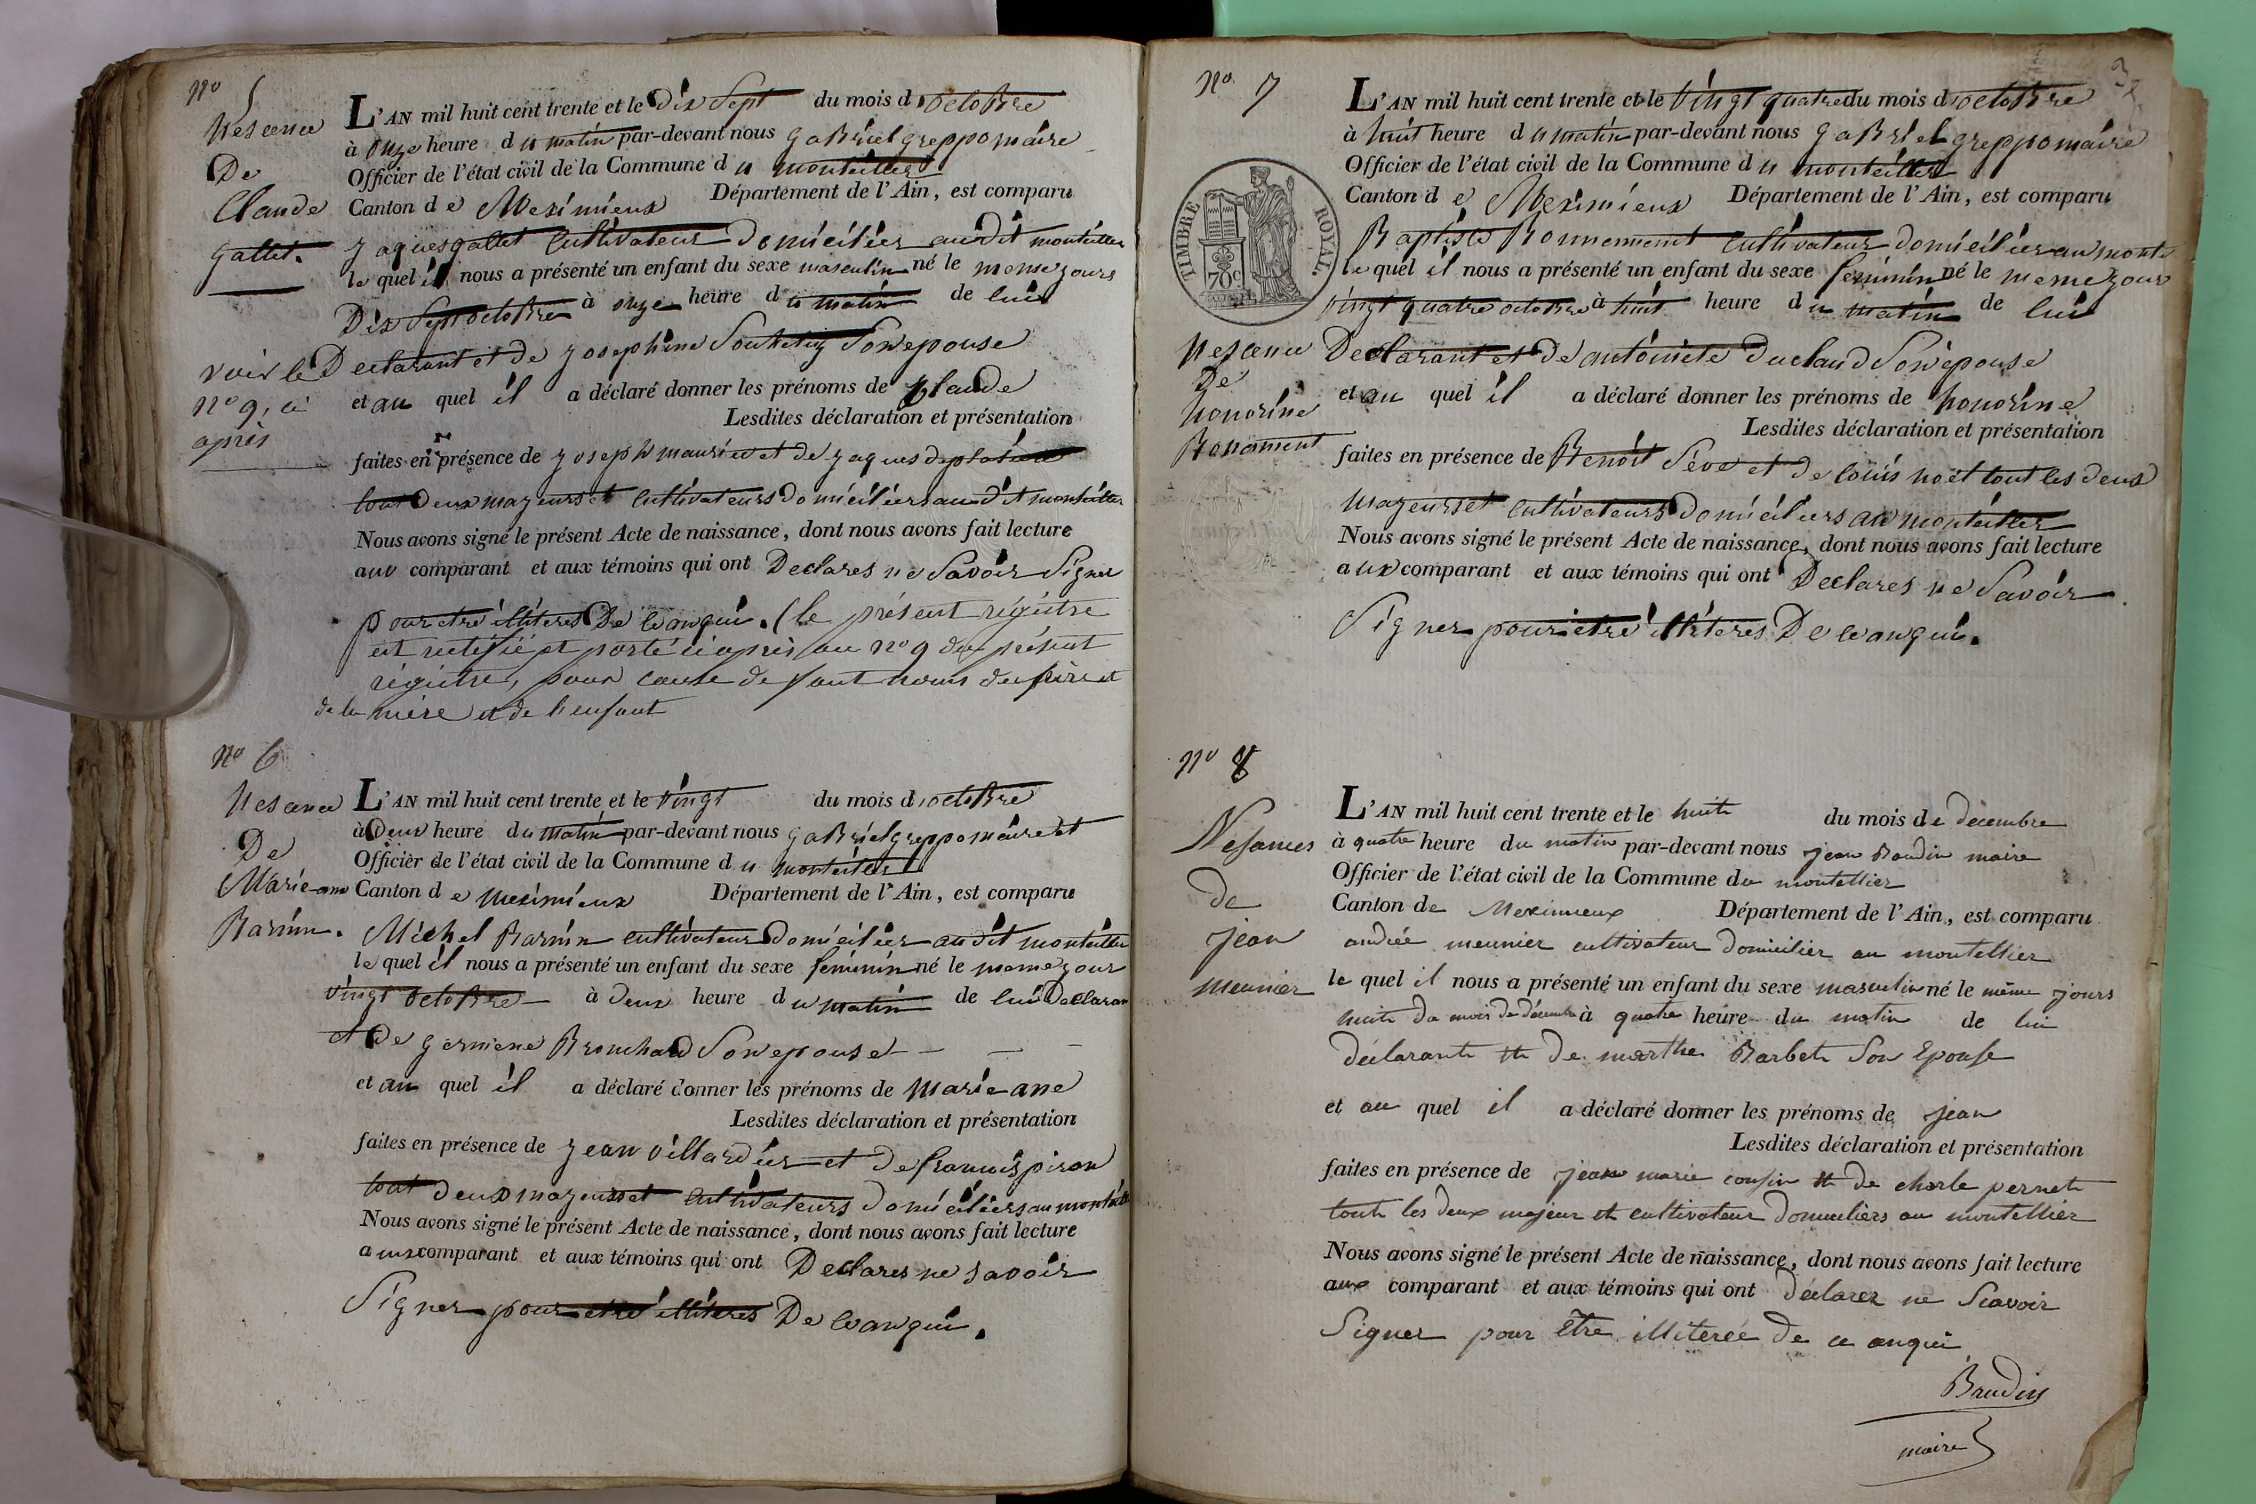 No 5
Nescence
De
Claude
gallet.
voir le
no 9, ci
après
L'AN mil huit cent trente et le Dix Sept du mois d octoBre
à onze heure du matin par-devant nous gaBriel greppo maire
Officier de l'état civil de la Commune du monteiller
Canton de Meximieux Département de l'Ain, est comparu
jaques gallet cultivateur Domicilier audit monteiller
le quel il nous a présenté un enfant du sexe masculin né le meme jours
Dix Sept octoBre à onze heure du matin de lui
Declarant et de josephine Son epouse
et au quel il a déclaré donner les prénoms de Claude
Lesdites déclaration et présentation
faites en présence de joseph maurin et de jaques
tout Deux mazeurs et cultivateurs Domiciliers audit monteiller
Nous avons signé le présent Acte de naissance, dont nous avons fait lecture
aux comparant et aux témoins qui ont Declares ne Savoir Signer
pour etre illiteres De ce anqui. (le présent régistre
est rectifié et porté ci après au no 9 du présent
régistre, pour cause de faut noms du père et
de la mère et de l'enfant
No 6
Nescence
De
Marie-ane
Barnin.
L'AN mil huit cent trente et le vingt du mois d octoBre
à Deux heure du matin par-devant nous gaBriel greppo maire et
Officier de l'état civil de la Commune du monteiller
Canton de meximieux Département de l'Ain, est comparu
Michel Barnin cultivateur Domicilier audit monteiller
le quel il nous a présenté un enfant du sexe feminin né le meme jour
vingt octoBre à Deux heure du matin de lui Declaran
et De germene Bronchard Son epouse
et au quel il a déclaré donner les prénoms de Marie ane
Lesdites déclaration et présentation
faites en présence de jean villardier et De francois piron
tout deux mazeurs et cultivateurs Domiciliers au monteiller
Nous avons signé le présent Acte de naissance, dont nous avons fait lecture
aux comparant et aux témoins qui ont Declares ne savoir
Signer pour etre illiteres De ce anqui.
32
No 7
Nescence
De
honorine
Bonnement
TIMBRE ROYAL.
70c
L'AN mil huit cent trente et le vingt quatre du mois d octoBre
à huit heure du matin par-devant nous gaBriel greppo maire
Officier de l'état civil de la Commune du monteiller
Canton de Meximieux Département de l'Ain, est comparu
Baptiste Bonnement cultivateur domicilier au monte
le quel il nous a présenté un enfant du sexe feminin né le meme jour
vingt quatre octobre à huit heure du matin de lui
Declarant et de antoinete Duclaud Son epouse
et au quel il a déclaré donner les prénoms de honorine
Lesdites déclaration et présentation
faites en présence de Benoit Seve et de louis noel tout les deux
mazeurs et cultivateurs Domiciliers au monteiller
Nous avons signé le présent Acte de naissance, dont nous avons fait lecture
aux comparant et aux témoins qui ont Declares ne Savoir
Signer pour etre illiteres De ce anqui.
No 8
Nesances
de
jean
meunier
L'AN mil huit cent trente et le huit du mois de décembre
à quatre heure du matin par-devant nous jean Baudin maire
Officier de l'état civil de la Commune du montellier
Canton de Meximieux Département de l'Ain, est comparu
andrée meunier cultivateur Domicilier au montellier
le quel il nous a présenté un enfant du sexe masculin né le même jours
huit du mois de décembre à quatre heure du matin de lui
déclarant et De marthe Barbet Son Epouse
et au quel il a déclaré donner les prénoms de jean
Lesdites déclaration et présentation
faites en présence de jean marie cousin et De charle pernet
tout les deux majeur et cultivateur Domiciliers au montellier
Nous avons signé le présent Acte de naissance, dont nous avons fait lecture
aux comparant et aux témoins qui ont déclarer ne Scavoir
Signer pour Être illiterée De ce anqui
Baudin
maire